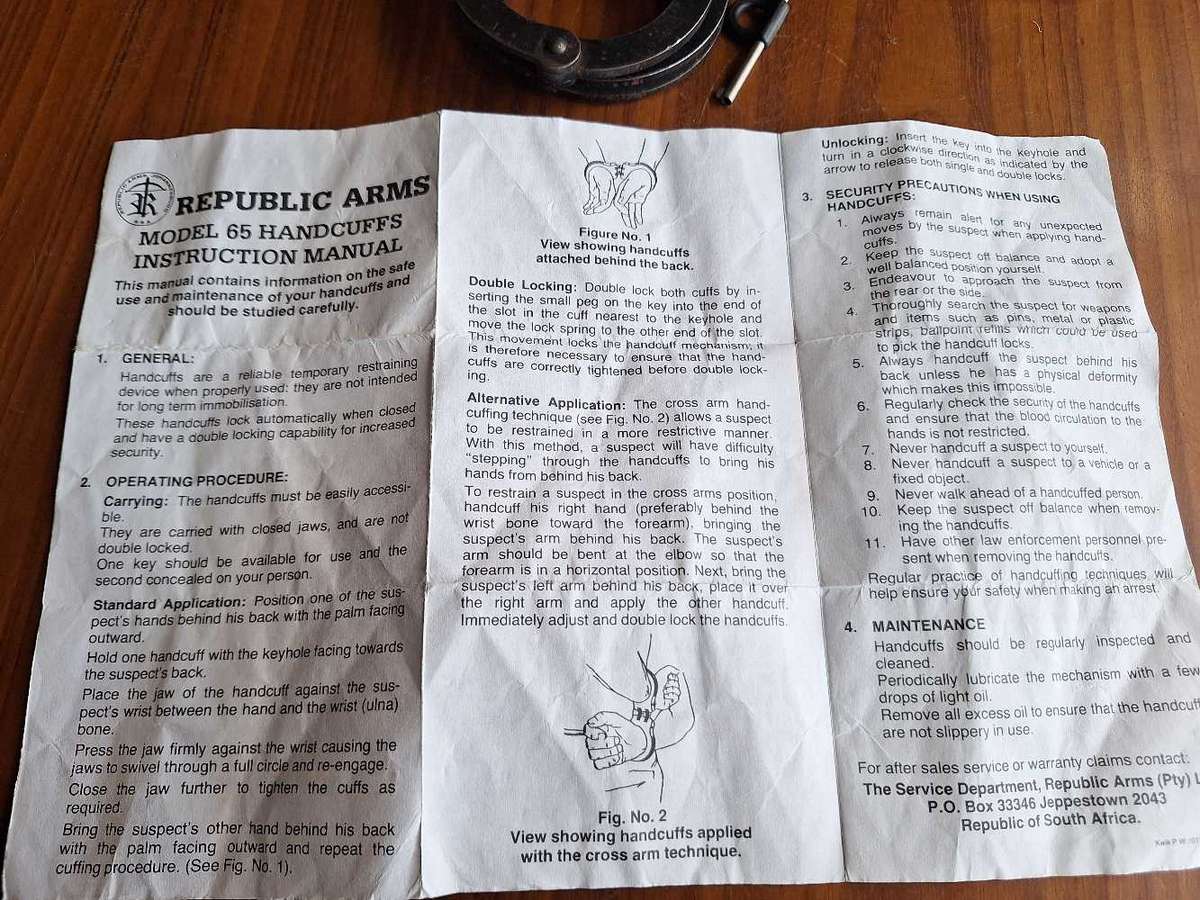 REPUBLIC ARMS
MODEL 65 HANDCUFFS
INSTRUCTION MANUAL
This manual contains information on the safe
use and maintenance of your handcuffs and
should be studied carefully.
1. GENERAL:
Handcuffs are a reliable temporary restraining
device when properly used: they are not intended
for long term immobilisation.
These handcuffs lock automatically when closed
and have a double locking capability for increased
security.
2. OPERATING PROCEDURE:
Carrying: The handcuffs must be easily accessi-
ble.
They are carried with closed jaws, and are not
double locked.
One key should be available for use and the
second concealed on your person.
Standard Application: Position one of the sus-
pect's hands behind his back with the palm facing
outward.
Hold one handcuff with the keyhole facing towards
the suspect's back.
Place the jaw of the handcuff against the sus-
pect's wrist between the hand and the wrist (ulna)
bone.
Press the jaw firmly against the wrist causing the
jaws to swivel through a full circle and re-engage.
Close the jaw further to tighten the cuffs as
required.
Bring the suspect's other hand behind his back
with the palm facing outward and repeat the
cuffing procedure. (See Fig. No. 1).
Figure No. 1
View showing handcuffs
attached behind the back.
Double Locking: Double lock both cuffs by in-
serting the small peg on the key into the end of
the slot in the cuff nearest to the keyhole and
move the lock spring to the other end of the slot.
This movement locks the handcuff mechanism; it
is therefore necessary to ensure that the hand-
cuffs are correctly tightened before double lock-
ing.
Alternative Application: The cross arm hand-
cuffing technique (see Fig. No. 2) allows a suspect
to be restrained in a more restrictive manner.
With this method, a suspect will have difficulty
"stepping" through the handcuffs to bring his
hands from behind his back.
To restrain a suspect in the cross arms position,
handcuff his right hand (preferably behind the
wrist bone toward the forearm), bringing the
suspect's arm behind his back. The suspect's
arm should be bent at the elbow so that the
forearm is in a horizontal position. Next, bring the
suspect's left arm behind his back, place it over
the right arm and apply the other handcuff.
Immediately adjust and double lock the handcuffs.
Fig. No. 2
View showing handcuffs applied
with the cross arm technique.
Unlocking: Insert the key into the keyhole and
turn in a clockwise direction as indicated by the
arrow to release both single and double locks.
3. SECURITY PRECAUTIONS WHEN USING
HANDCUFFS:
1. Always remain alert for any unexpected
moves by the suspect when applying hand-
cuffs.
2. Keep the suspect off balance and adopt a
well balanced position yourself.
3. Endeavour to approach the suspect from
the rear or the side.
4. Thoroughly search the suspect for weapons
and items such as pins, metal or plastic
strips, ballpoint refills which could be used
to pick the handcuff locks.
5. Always handcuff the suspect behind his
back unless he has a physical deformity
which makes this impossible.
6. Regularly check the security of the handcuffs
and ensure that the blood circulation to the
hands is not restricted.
7. Never handcuff a suspect to yourself.
8. Never handcuff a suspect to a vehicle or a
fixed object.
9. Never walk ahead of a handcuffed person.
10. Keep the suspect off balance when remov-
ing the handcuffs.
11. Have other law enforcement personnel pre-
sent when removing the handcuffs.
Regular practice of handcuffing techniques will
help ensure your safety when making an arrest.
4. MAINTENANCE
Handcuffs should be regularly inspected and
cleaned.
Periodically lubricate the mechanism with a few
drops of light oil.
Remove all excess oil to ensure that the handcuff
are not slippery in use.
For after sales service or warranty claims contact:
The Service Department, Republic Arms (Pty) L
P.O. Box 33346 Jeppestown 2043
Republic of South Africa.